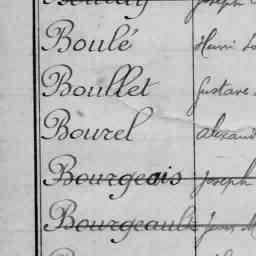 Boulé Henri
Boullet Gustave
Bourel Alexand
Bourgeois Joseph
Bourgeault Jean M